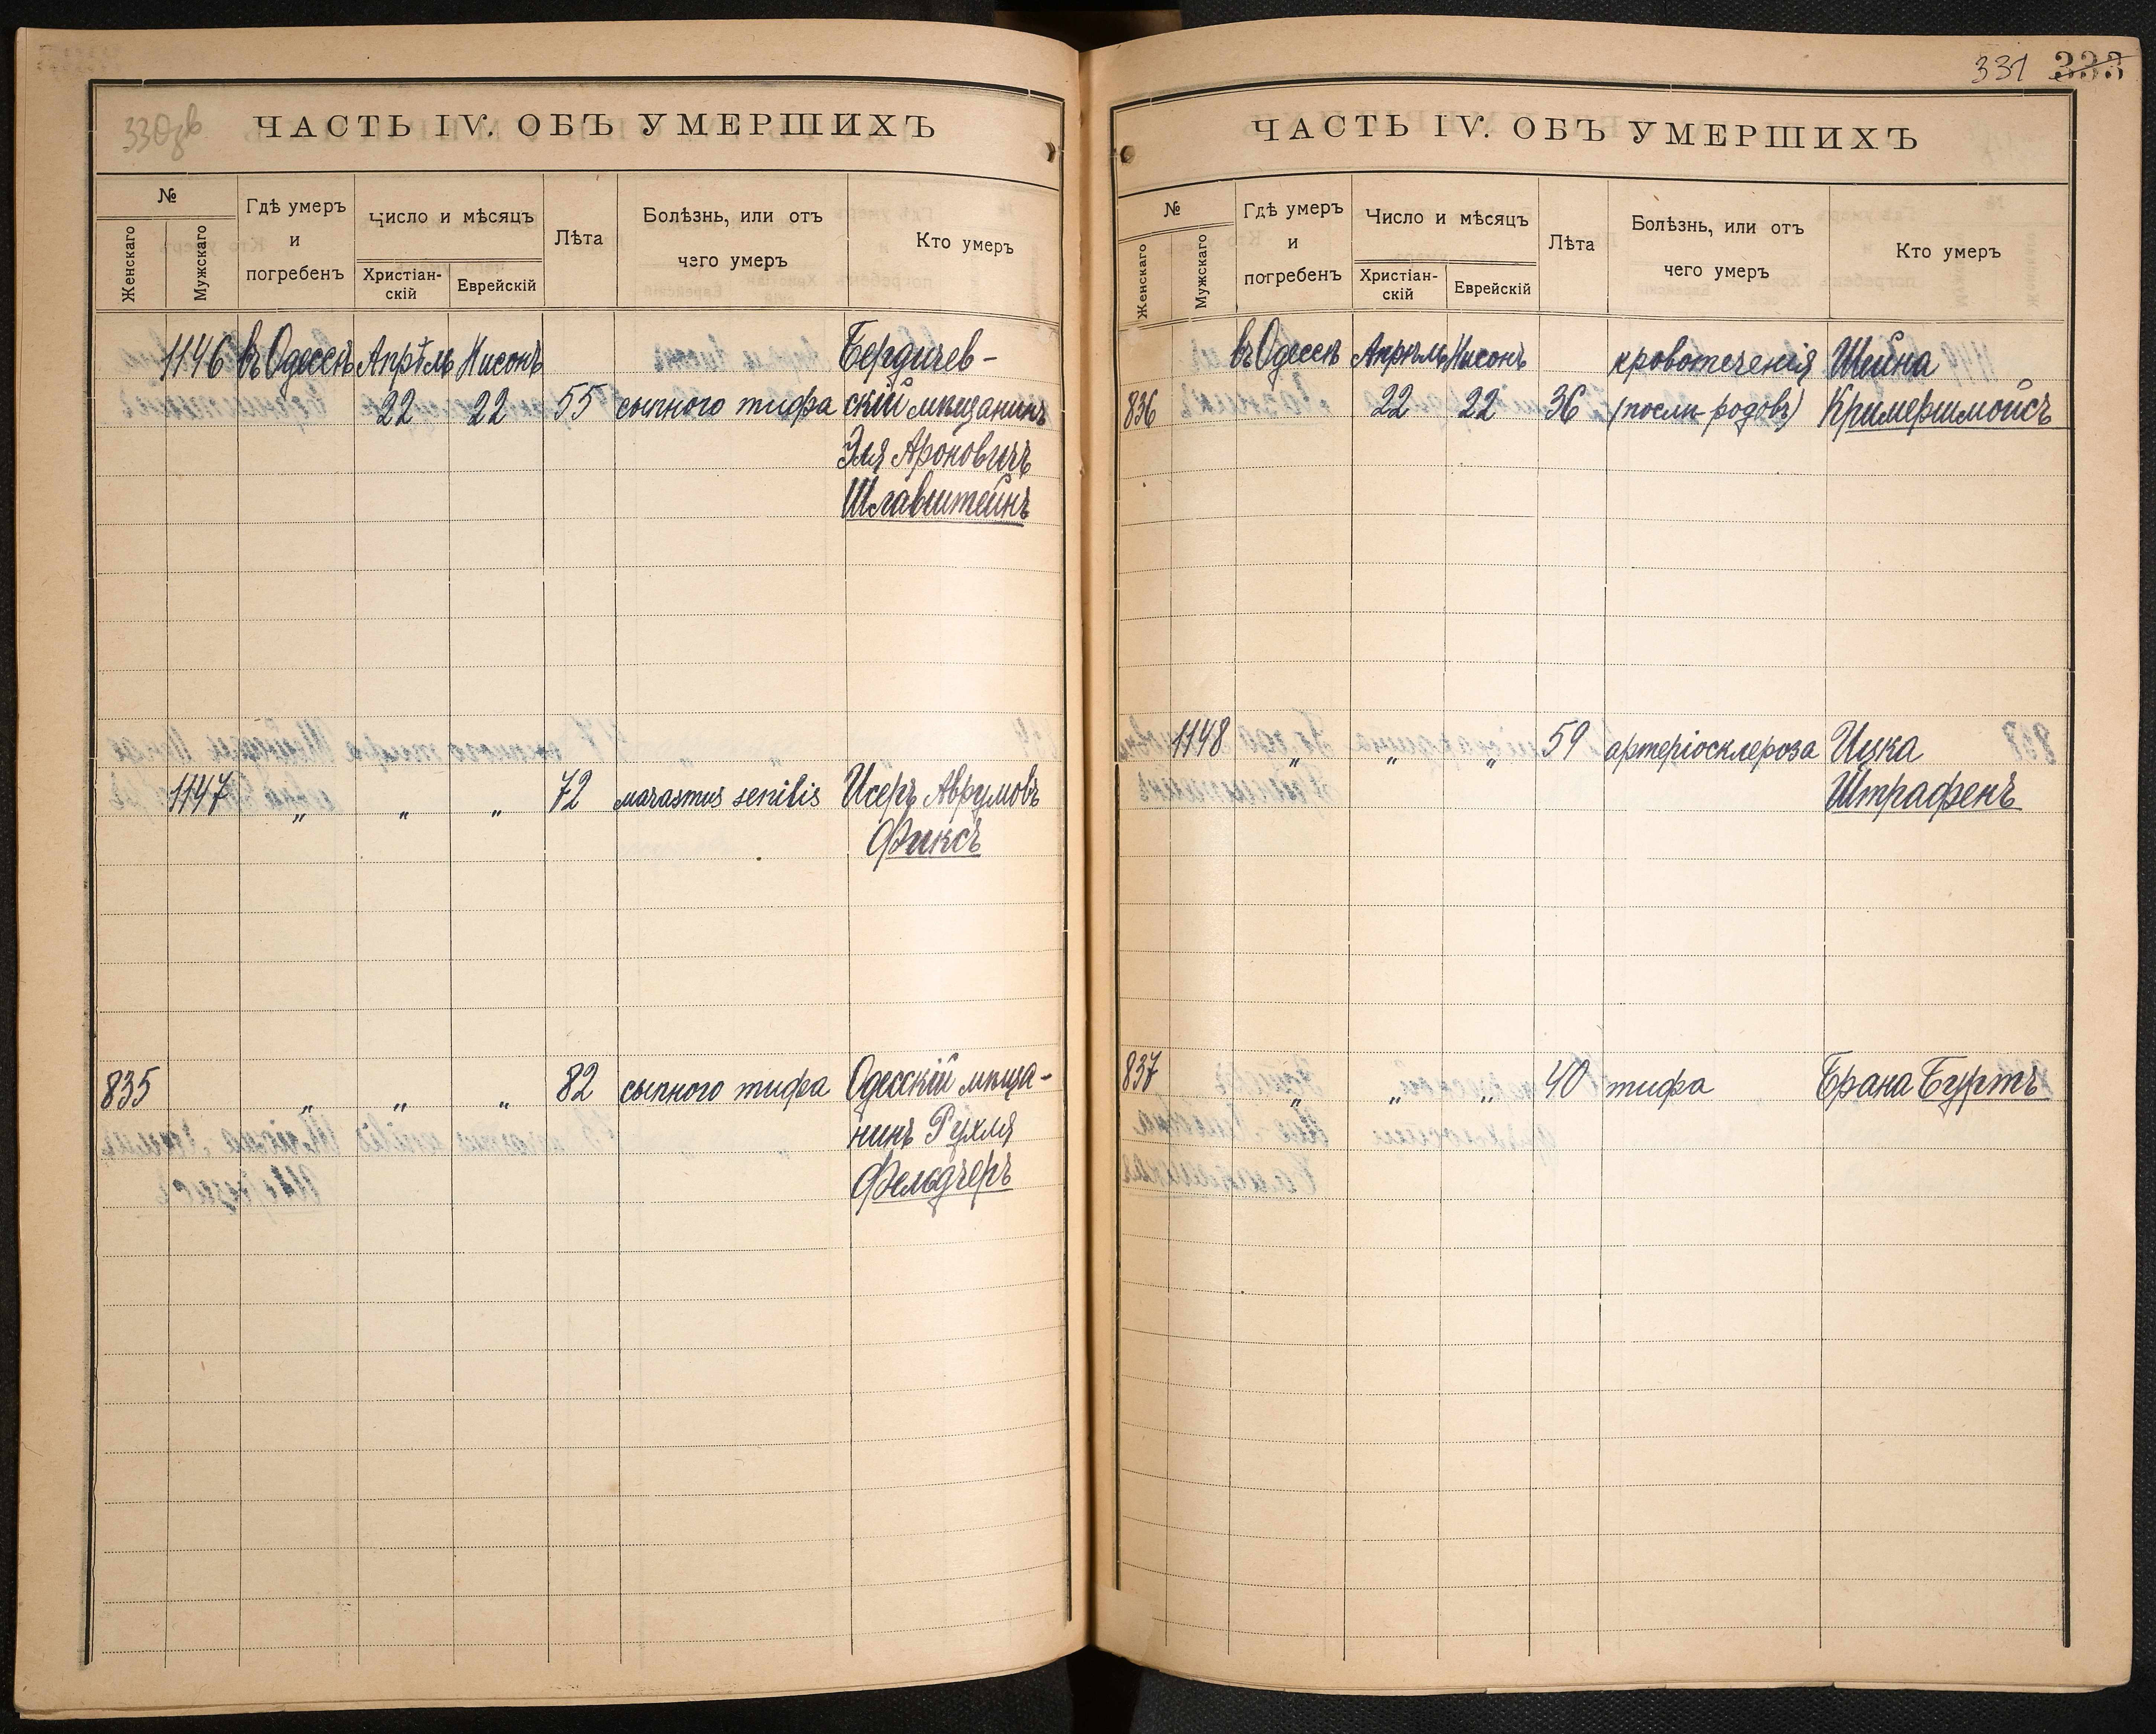 330 зв
ЧАСТЬ IV. ОБЪ УМЕРШИХЪ
№
Женскаго
Мужскаго
Гдѣ умеръ
и
погребенъ
Число и мѣсяцъ
Христіан-
скій
Еврейскій
Лѣта
Болѣзнь, или отъ
чего умеръ
Кто умеръ
1146 въ Одессѣ Апрѣль Нисонъ Бердичев-
22 22 55 сыпного тифа скій мѣщанинъ
Эля Ароновичъ
Шлавштейнъ
1147 „ „ „ 72 marasmus senilis Исеръ Аврумовъ
Фиксъ
835 „ „ „ 82 сыпного тифа Одесскій мѣща-
нинъ Рухля
Фельдчеръ
331 333
ЧАСТЬ IV. ОБЪ УМЕРШИХЪ
№
Женскаго
Мужскаго
Гдѣ умеръ
и
погребенъ
Число и мѣсяцъ
Христіан-
скій
Еврейскій
Лѣта
Болѣзнь, или отъ
чего умеръ
Кто умеръ
въ Одессѣ Апрѣль Нисонъ кровотеченія Шейна
836 22 22 36 (послѣ родовъ) Кримершмойсъ
1148 „ „ „ 59 артеріосклероза Ицка
Штрафенъ
837 „ „ „ 40 тифа Брана Буртъ